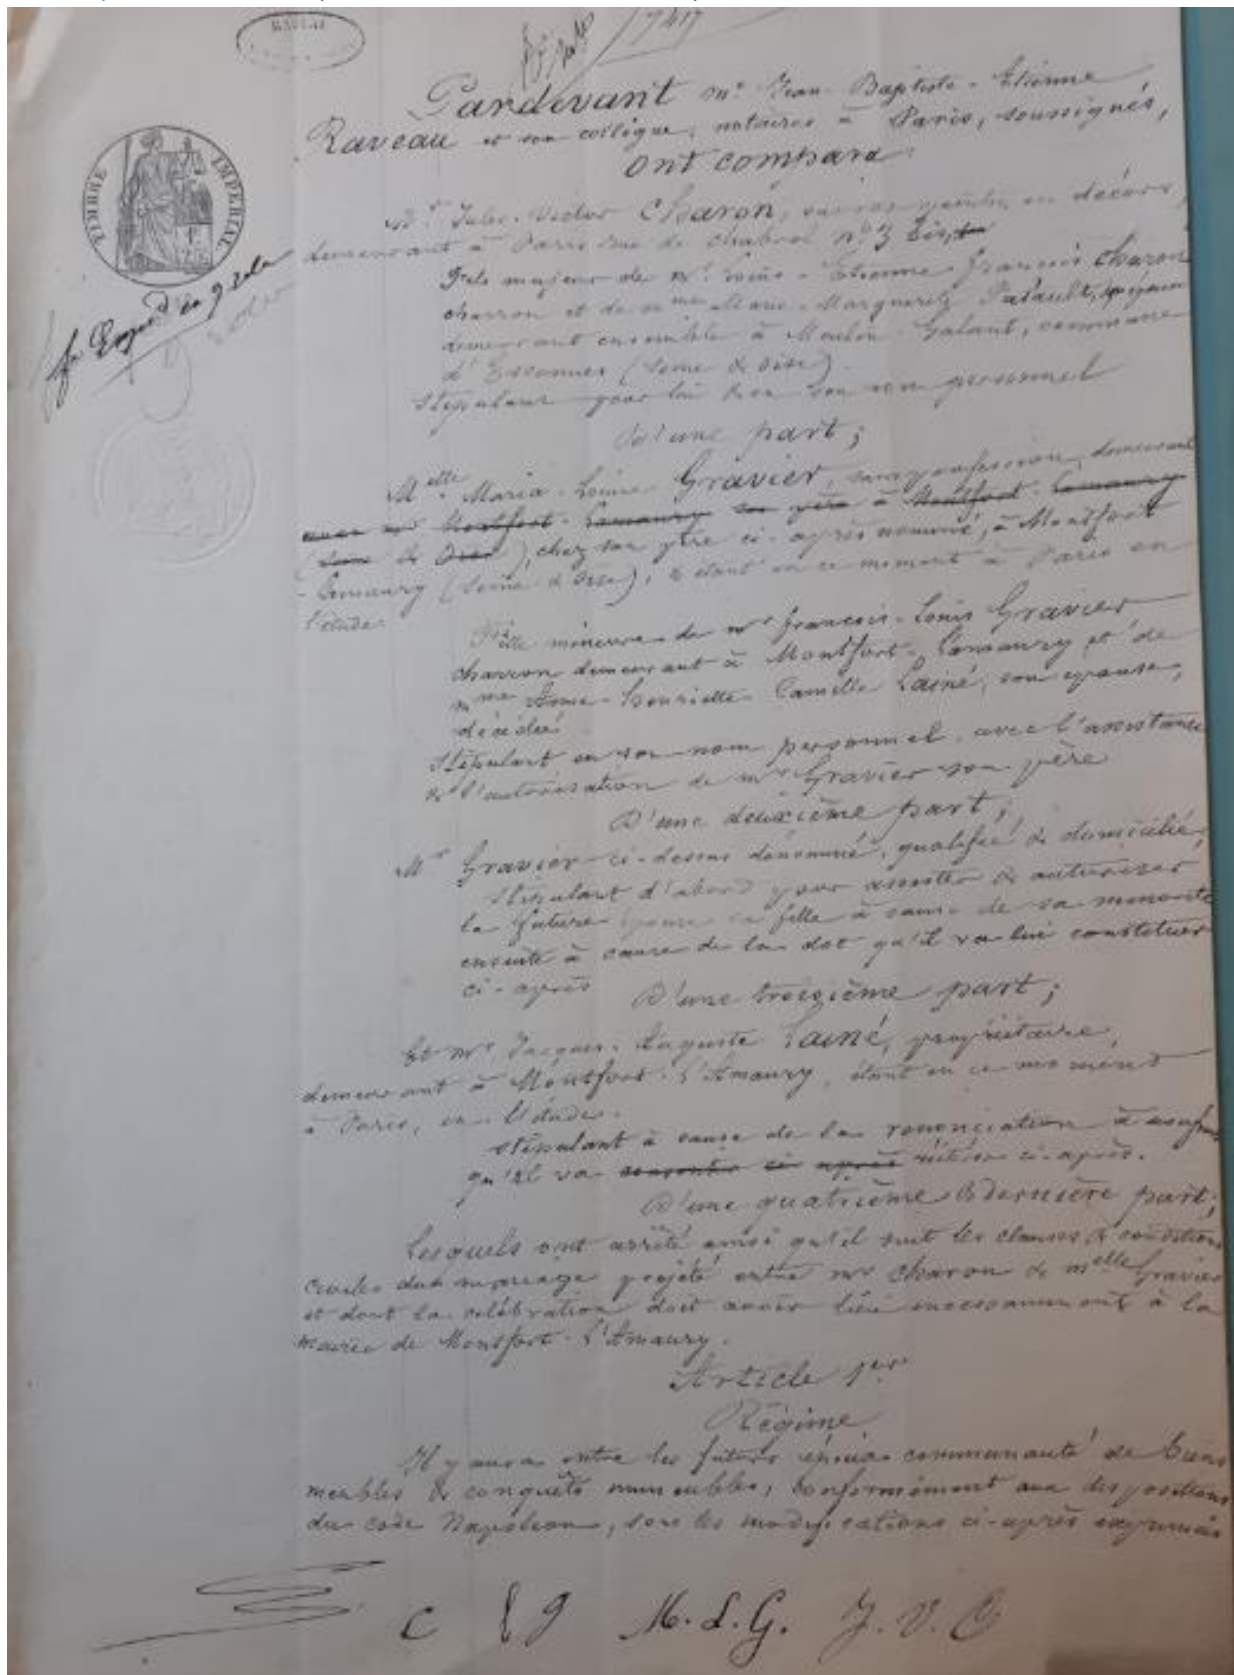 7417
TIMBRE IMPERIAL
Pardevant Me Jean-Baptiste-Etienne
Raveau et son collègue, notaires à Paris, soussignés,
ont comparu:
Mr Jules-Victor Charon, peintre en décors,
demeurant à Paris rue de Chabrol no 3 bis,
Fils majeur de Mr Etienne François Charon
charron et de Mme Marie-Marguerite
demeurant ensemble à Moulin-Galant, commune
d'Essonnes (Seine & Oise).
Stipulant pour lui & en son nom personnel
D'une part;
Melle Maria-Louise Gravier, sans profession, demeurant
avec Mr Montfort-Lamaury son père à Montfort-Lamaury
(Seine & Oise), chez son père ci-après nommé, à Montfort
-Lamaury (Seine & Oise), & étant en ce moment à Paris en
l'étude.
Fille mineure de Mr François-Louis Gravier
charron demeurant à Montfort-Lamaury et de
Mme Henriette Camille Lainé, son épouse,
décédée
Stipulant en son nom personnel avec l'assistance
& l'autorisation de Mr Gravier son père
D'une deuxième part;
Mr Gravier ci-dessus dénommé, qualifié & domicilié,
Stipulant d'abord pour assister & autoriser
la future épouse sa fille à cause de sa minorité
ensuite à cause de la dot qu'il va lui constituer
ci-après
D'une troisième part;
Et Mr Jacques-Auguste Lainé, propriétaire,
demeurant à Montfort-l'Amaury, étant en ce moment
à Paris, en l'étude.
Stipulant à cause de la renonciation à usufruit
qu'il va consentir ci après ci-après.
D'une quatrième & dernière part;
Lesquels ont arrêté ainsi qu'il suit les clauses & conditions
civiles du mariage projeté entre Mr Charon & Melle Gravier
et dont la célébration doit avoir lieu incessamment à la
mairie de Montfort-l'Amaury.
Article 1er
Régime
Il y aura entre les futurs époux communauté de biens
meubles & conquêts immeubles, conformément aux dispositions
du code Napoléon, sous les modifications ci-après exprimées
C L G M.L.G. J.V.C